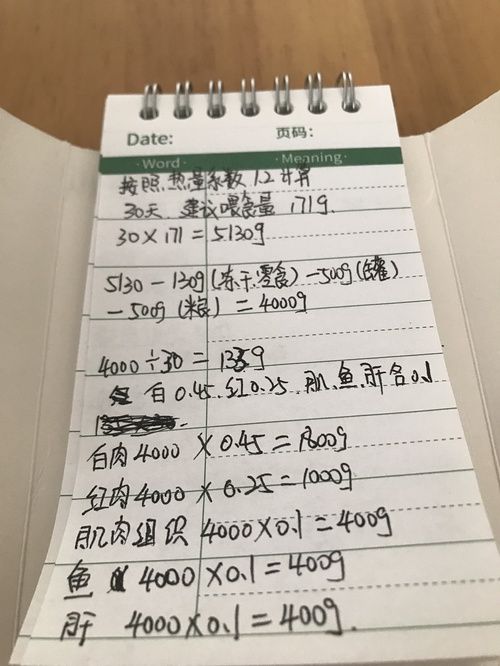 Date: 页码:
·Word· ·Meaning·
按照热量系数1.2计算
30天 建议喂食量 171g.
30×171=5130g
5130-130g(冻干.零食)-500g(罐)
-500g(粮)=4000g
4000÷30=133g
白0.45.红0.25.肌.鱼.肝各0.1
白肉4000×0.45=1800g
红肉4000×0.25=1000g
肌肉组织 4000×0.1=400g
鱼 4000×0.1=400g
肝 4000×0.1=400g.